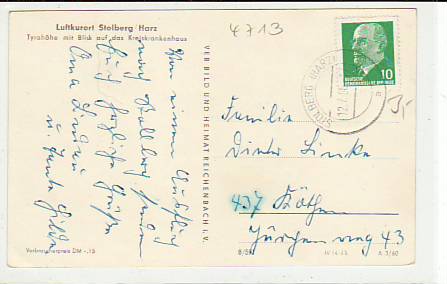 4713
Luftkurort Stolberg/Harz
Tyrahöhe mit Blick auf das Kreiskrankenhaus
Von einem Ausflug
nach Stolberg senden
Euch herzliche Grüße
u. Tante Hilde
VEB BILD UND HEIMAT REICHENBACH i. V.
DEUTSCHE DEMOKRATISCHE REPUBLIK
10
STOLBERG (HARZ)
3,-
Familie
Dieter Linke
437 Köthen
43
Verbraucherpreis DM -,15
A 3/60